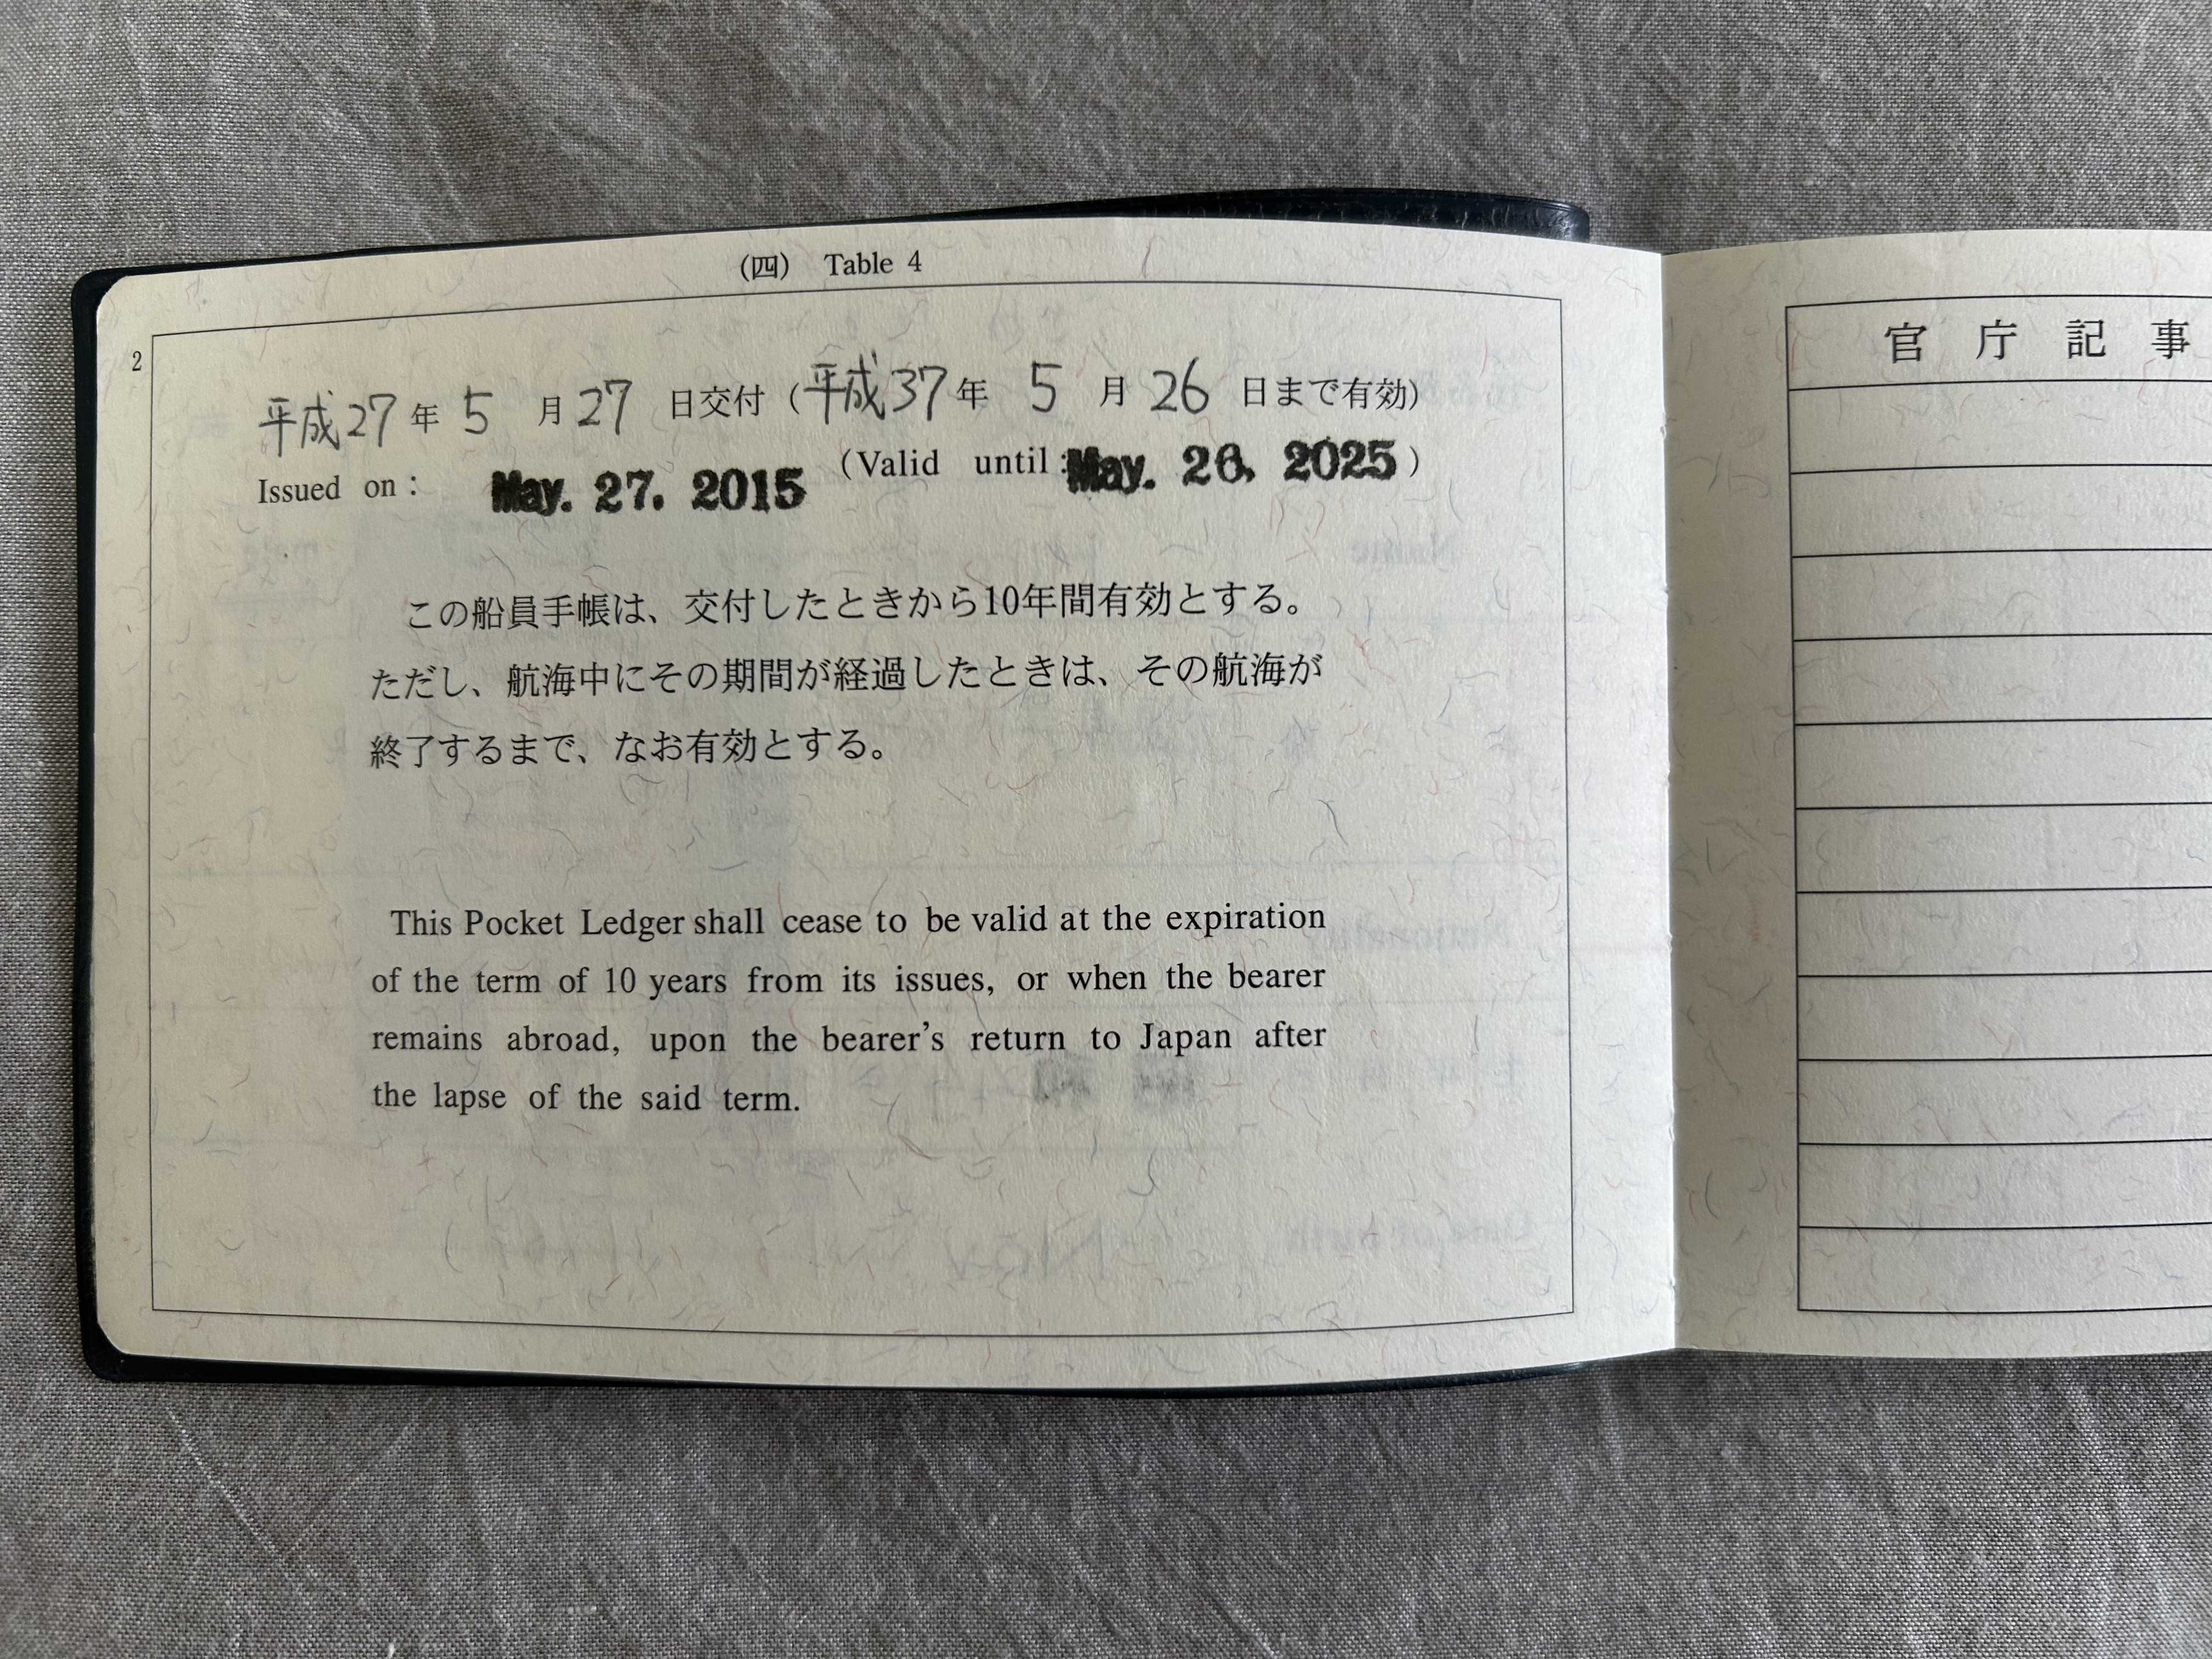 (四) Table 4
2
平成27年 5 月27 日交付 (平成37年 5 月 26 日まで有効)
Issued on : May. 27. 2015 (Valid until : May. 26. 2025 )
この船員手帳は、交付したときから10年間有効とする。
ただし、航海中にその期間が経過したときは、その航海が
終了するまで、なお有効とする。
This Pocket Ledger shall cease to be valid at the expiration
of the term of 10 years from its issues, or when the bearer
remains abroad, upon the bearer's return to Japan after
the lapse of the said term.
官 庁 記 事